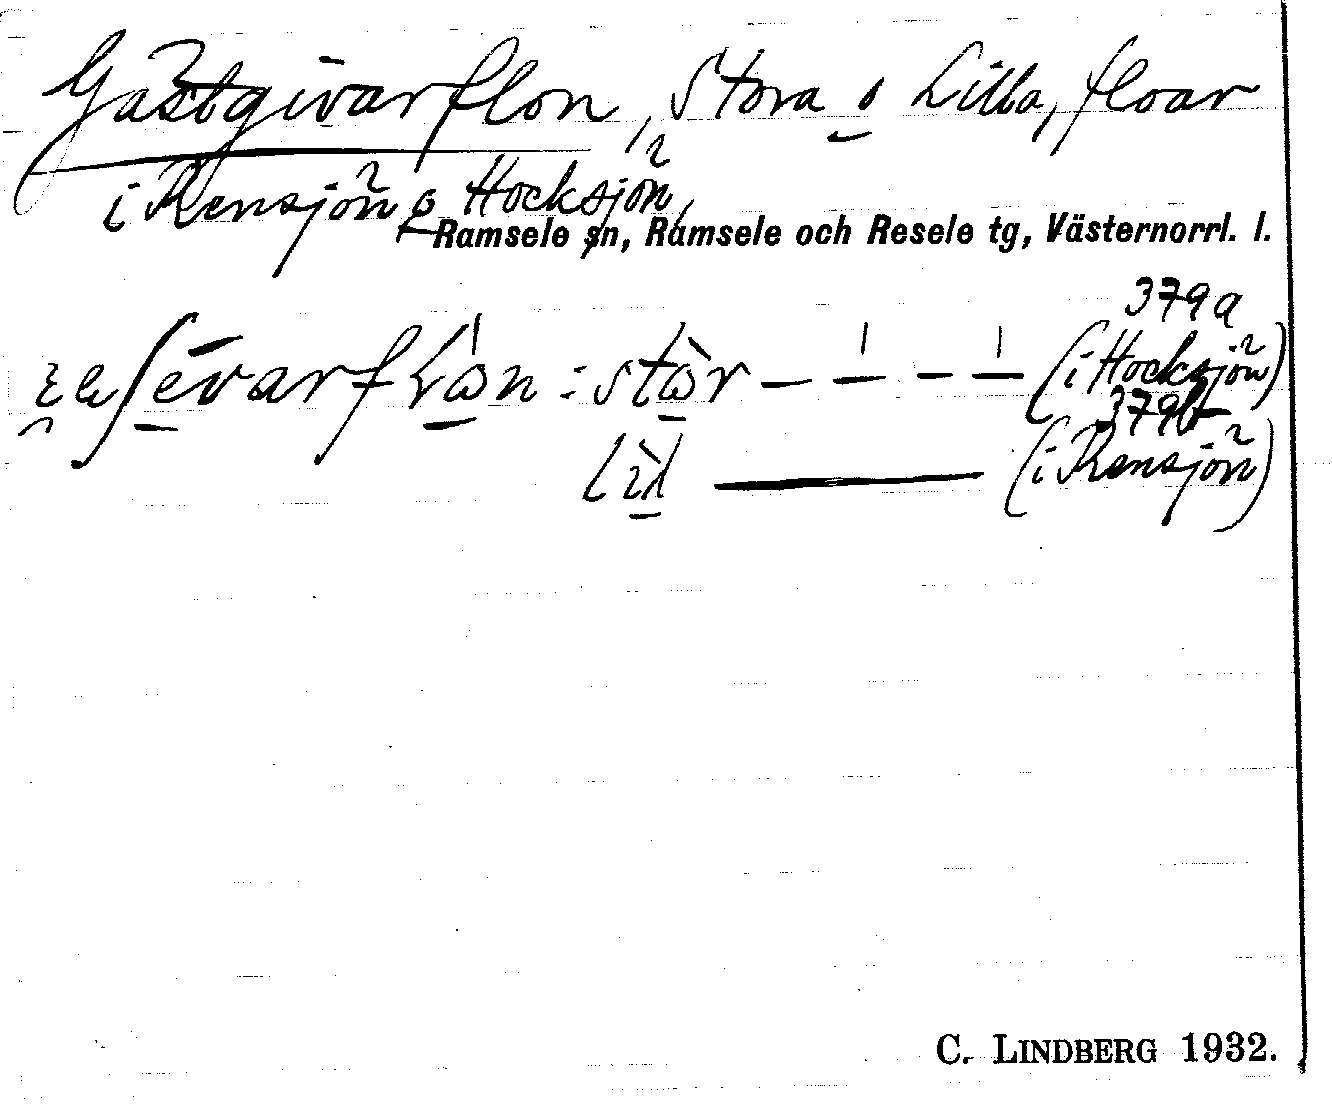 Gästgivarflon, Stora o Lilla, floar
i Rensjön o Hocksjön,
Ramsele sn, Ramsele och Resele tg, Västernorrl. l.
379a
: stor – – – – (i Hocksjön)
379b
lil —— (i Rensjön)
C. LINDBERG 1932.